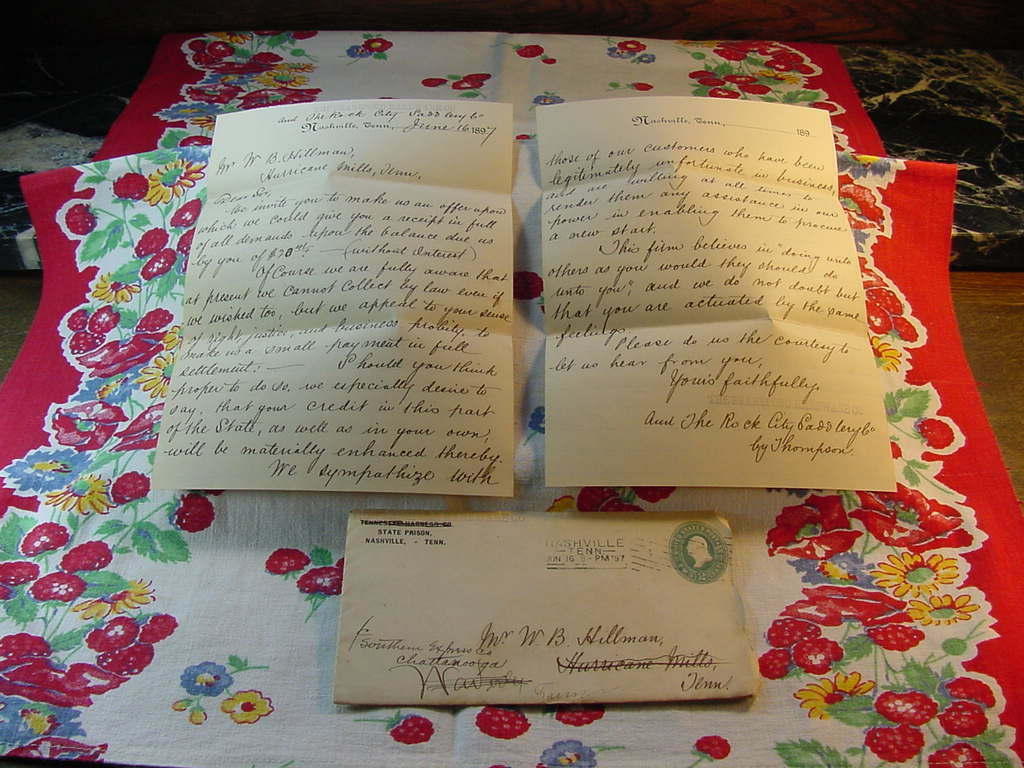 and The Rock City Saddlery Co
Nashville, Tenn., June 16, 1897
Mr W. B. Hillman,
Hurricane Mills, Tenn.
Dear Sir,
We invite you to make us an offer upon
which we could give you a receipt in full
of all demands upon the balance due us
by you of $20 (without Interest)
Of Course we are fully aware that
at present we cannot Collect by law even if
we wished too, but we appeal to your sense
of right justice, and business probity, to
make us a small payment in full
settlement: —
Should you think
proper to do so, we especially desire to
say, that your credit in this part
of the State, as well as in your own,
will be materially enhanced thereby.
We sympathize with
Nashville, Tenn., 189
those of our customers who have been
legitimately unfortunate in business,
and are willing at all times to
render them any assistance in our
power in enabling them to procure
a new start.
This firm believes in "doing unto
others as you would they should do
unto you", and we do not doubt but
that you are actuated by the same
feelings.
Please do us the courtesy to
let us hear from you,
Yours faithfully,
and The Rock City Saddlery Co
by Thompson.
TENNESSEE HARNESS CO.
STATE PRISON,
NASHVILLE, - TENN.
NASHVILLE
TENN
JUN 16 8-PM '97
Mr W. B. Hillman,
Hurricane Mills,
Tenn.
Southern Express Co
Chattanooga